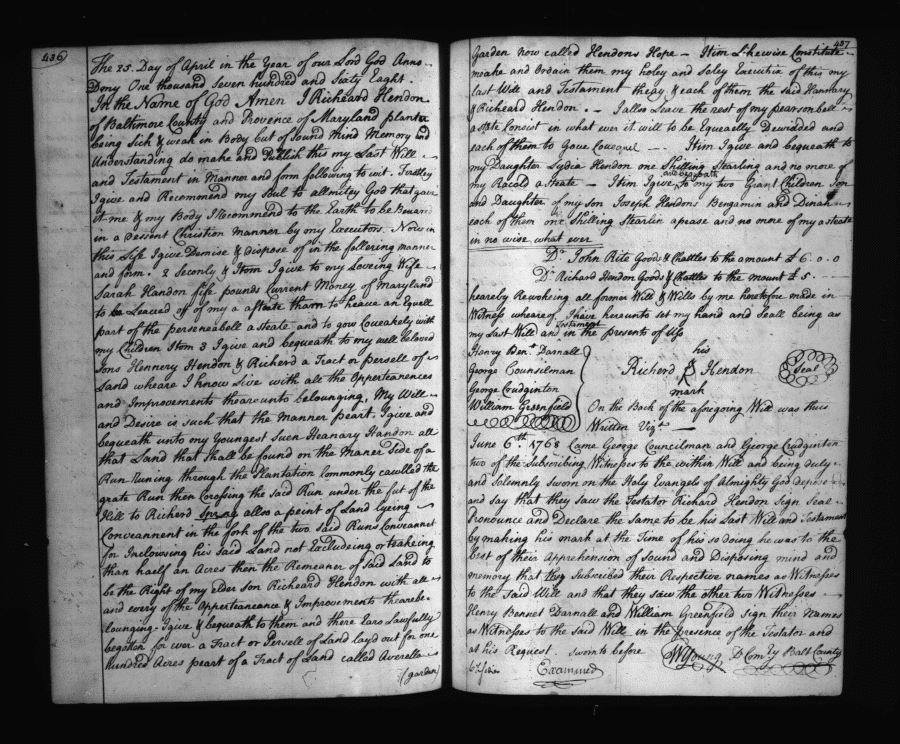 436
The 25. Day of April in the Year of our Lord God Anno
Dony One thousand Seven hundred and Sixty Eaght.
In the Name of God Amen I Richeard Hendon
of Baltimore County and Provence of Maryland planta
being Sick & weak in Body but of sound mind Memory and
Understanding do make and Publish this my Last Will
and Testament in Manner and form following to wit. Firstley
I give and Recommend my Soul to allmitey God that gave
it me & my Body I Recommend to the Earth to be Bouard
in a Dessent Christion manner by my Executors. Now in
this Life I give Demise & dispose of in the follering manner
and form. 2 Seconly & Itom I give to my Loveing Wife
Sarah Handon fife pounds Current Money of Maryland
to be Leaued of of my a asteate tharn to heave an Equell
part of the perseneabell a steale and to gow Coueakely with
my Children Itom 3 I give and bequeath to my well beloved
Sons Hennery Hendon & Richerd a Tract or persell of
Land wheare I know Live with all the Opperteanences
and Improvements thear unto belounging, My Will
and Desire is such that the Manner peart. I give and
bequeath unto my Youngest Suen Heanary Handon all
that Land that shall be found on the Maner Side of a
Run Runing through the Plantation Commonly cawlled the
grate Run then Crossing the said Run under the fut of the
Hill to Richerd Spring allso a peint of Land Lying
Conveannent in the fork of the two said Runs Conveannet
for Inclowsing his Said Land not Excludeing or teakeing
than haelf an Acres then the Remeaner of Said Land to
be the Right of my elder Son Richeard Hendon with all
and every of the Opperteaneance & Improvements thearebe
lounging. I give & bequeath to them and there Ears Lawfully
begotten for ever a Tract or Persell of Land layd out for one
hundred Acres peart of a Tract of Land called Averella
(garden)
437
Garden now called Hendons Hope — Itim Likewise Constitute
make and Ordain them my holey and Soley Executix of this my
last Will and Testament theay & each of them the said Hannary
& Richeard Hendon. — I allso Leave the rest of my pearsonbell
astate Consist in what ever it will to be Equeallly Dewidded and
each of them to Goue Coueqael — Itim I give and bequeath to
my Daughter Lydia Hendon one Shilling Stearling and no more of
my Racold a Steate — Itim I give and bequeath to my two Grant Children Son
and Daughter of my son Joseph Hendons Benjamin and Dinah
each of them one shilling Stearlin apease and no more of my asteate
in no wise what ever
Dr. John Rite Goods & Chattles to the amount £ 6. 0. 0
Dr. Richard Hendon Goods & Chattles to the mount £ 5
heareby Revoking all former Will & Wills by me heretofore made in
Witness wheareof I have hereunto set my hand and Seall being as
my Last Will and Testament in the presents of Uss
Henry Ben.t Darnall
George Counselman
George Cudginton
William Greenfield
his
Richerd Hendon
mark
Seal
On the Back of the aforegoing Will was thus
Written Viz.t
June 6th. 1768 Came George Councilman and George Crudginton
two of the Subscribing Witnesses to the within Will and being duly
and Solemnly Sworn on the Holy Evangels of Almighty God depose
and Say that they saw the Testator Richard Hendon Sign Seal
Pronounce and Declare the same to be his Last Will and Testament
by making his mark at the Time of his so doing he was to the
best of their Apprehension of Sound and Disposing mind and
memory that they Subscribed their Respective names as Witnesses
to the Said Will and that they saw the other two Witnesses
Henry Bennet Darnall and William Greenfield sign their Names
as Witnesses to the said Will in the presence of the Testator and
at his Request. Sworn before
WYoung D Comy Balt County
Examined